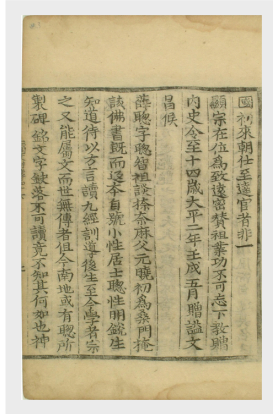 國初來朝仕至達官者非一
顯宗在位為致遠密贊祖業功不可忘下敎贈
內史令至十四歲大平二年壬戌五月贈謚文
昌侯
薛聰字聰智祖談捺奈麻父元曉初為桑門掩
該佛書旣而返本自號小性居士聰性明銳生
知道待以方言讀九經訓導後生至今學者宗
之又能屬文而世無傳者但今南地或有聰所
製碑銘文字缺落不可讀竟不知其何如也神